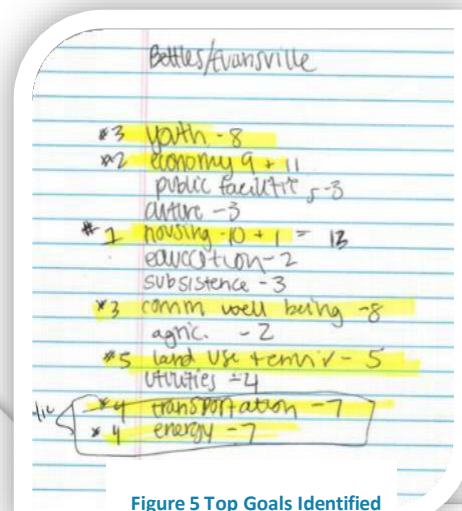 Bettles/Evansville
#3 youth - 8
#2 economy 9 + 11
public facilitie s -3
culture - 3
#1 housing - 10 + 1 = 13
education - 2
subsistence - 3
*3 comm well being - 8
agric. - 2
#5 land use + envir - 5
utilities - 4
*4 transportation - 7
*4 energy - 7
Figure 5 Top Goals Identified